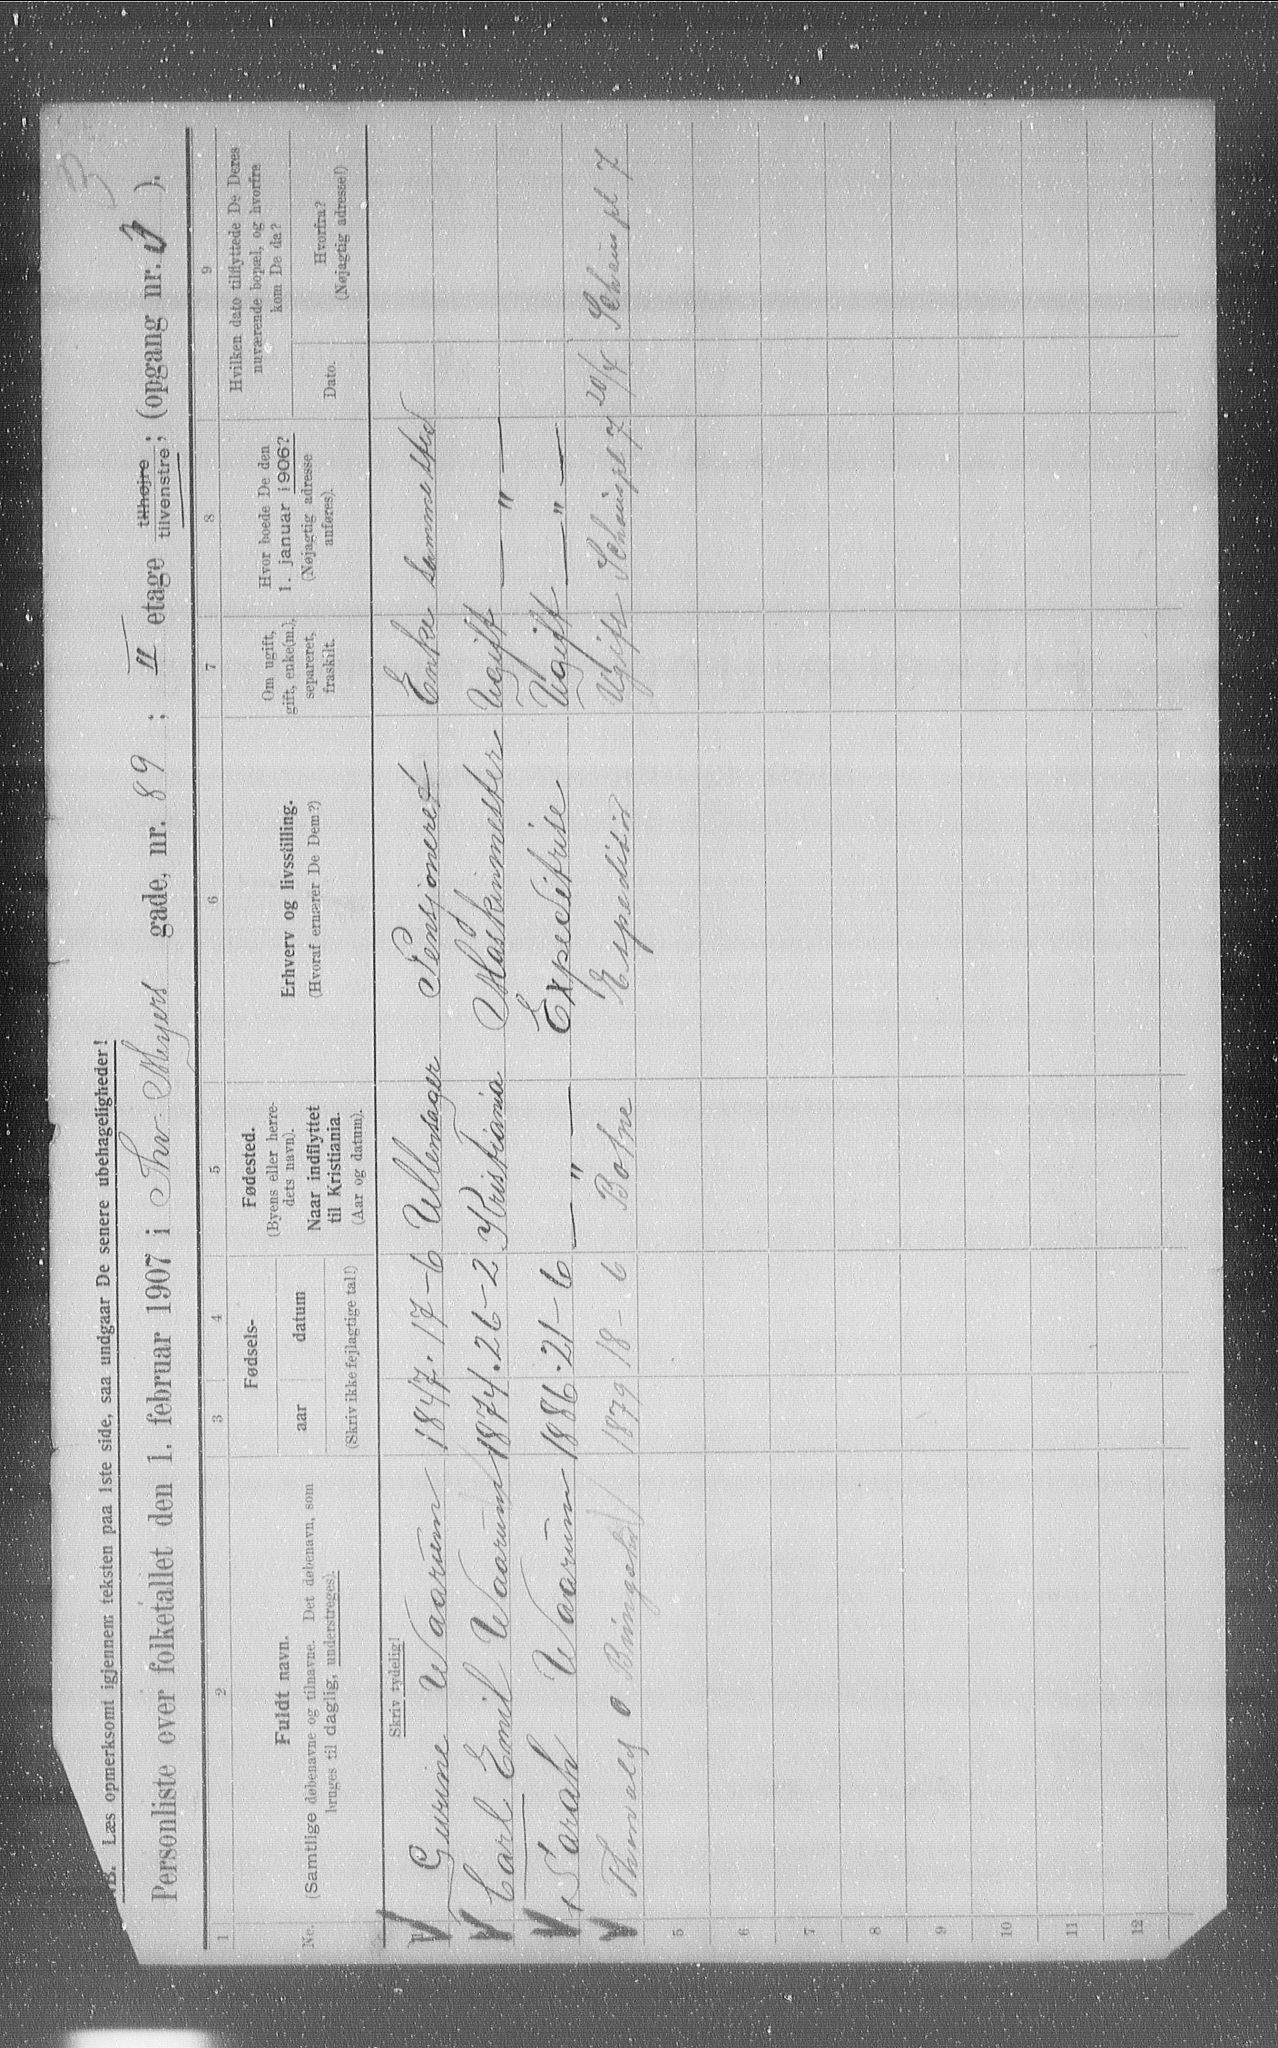 NB. Læs opmerksomt igjennem teksten paa 1ste side, saa undgaar De senere ubehageligheder!
Personliste over folketallet den 1. februar 1907 i Thv. Meyers gade, nr. 89 ; II etage tilhøjre tilvenstre ; (opgang nr. ).
1 2 3 4 5 6 7 8 9
No.
Fuldt navn.
(Samtlige døbenavne og tilnavne. Det døbenavn, som
bruges til daglig, understreges).
Fødsels-
aar datum
(Skriv ikke fejlagtige tal!)
Fødested.
(Byens eller herre-
dets navn).
Naar indflyttet
til Kristiania.
(Aar og datum).
Erhverv og livsstilling.
(Hvoraf ernærer De Dem?)
Om ugift,
gift, enke(m.),
separeret,
fraskilt.
Hvor boede De den
1. januar 1906?
(Nøjagtig adresse
anføres).
Hvilken dato tilflyttede De Deres
nuværende bopæl, og hvorfra
kom De da?
Dato.
Hvorfra?
(Nøjagtig adresse!)
Skriv tydelig!
Gurine Waarum 1847. 17-6 Ullensager Pensjoneret Enke Sammested
Carl Emil Waarum 1874. 26-2 Kristiania Maskinmester Ugift — " —
Sarah Waarum 1886. 21-6 — " — Expeditrise Ugift — " —
1879 18-6 Botne Espeditør Ugift Schouspl 7 20/4 Schous pl 7
5
6
7
8
9
10
11
12